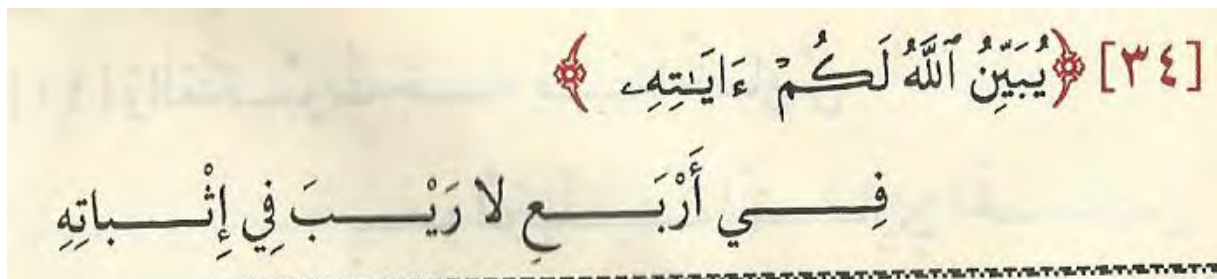 [٣٤] ﴿يُبَيِّنُ ٱللَّهُ لَكُمْ ءَايَـٰتِهِۦ﴾
فِــي أَرْبَــعٍ لا رَيْــبَ فِي إِثْــباتِهِ